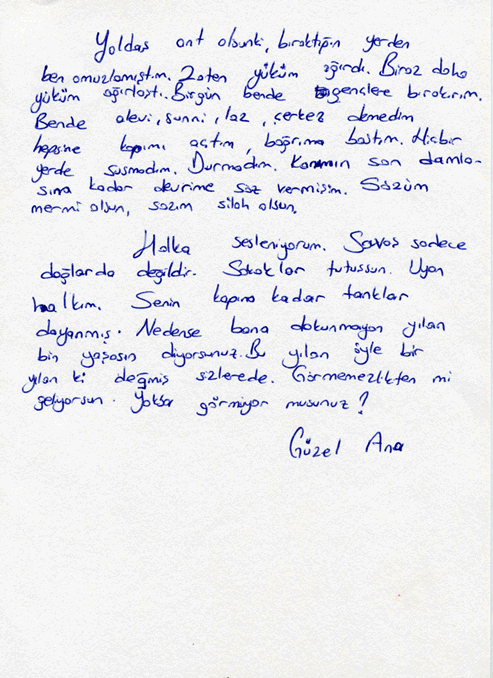 Yoldaş ant olsunki, bıraktığın yerden
ben omuzlamıştım. Zaten yüküm ağırdı. Biraz daha
yüküm ağırlaştı. Birgün bende gençlere bırakırım.
Bende alevi, sunni, laz, çerkez demedim
hepsine kapımı açtım, bağrıma bastım. Hiçbir
yerde susmadım. Durmadım. Kanımın son damla-
sına kadar devrime söz vermişim. Sözüm
mermi olsun, sazım silah olsun.
Halka sesleniyorum. Savaş sadece
dağlarda değildir. Sokaklar tutuşsun. Uyan
halkım. Senin kapına kadar tanklar
dayanmış. Nedense bana dokunmayan yılan
bin yaşasın diyorsunuz. Bu yılan öyle bir
yılan ki değmiş sizlerede. Görmemezlikten mi
geliyorsun. Yoksa görmüyor musunuz?
Güzel Ana